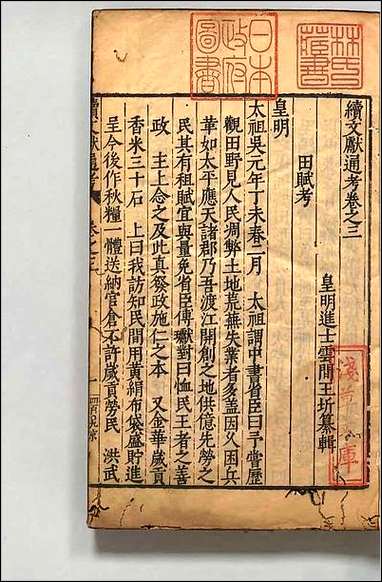 續文獻通考卷之三
皇明進士雲間王圻纂輯
田賦考
皇明
太祖吳元年丁未春二月　太祖謂中書省臣曰予嘗歷
觀田野見人民凋弊土地荒蕪失業者多盖因久困兵
華如太平應天諸郡乃吾渡江開創之地供億先勞之
民其有租賦宜與量免省臣傅瓛對曰恤民王者之善
政　主上念之及此真發政施仁之本　又金華歲貢
香米三十石　上曰我訪知民間用黃絹布袋盛貯進
呈今後作秋糧一體送納官倉不許歲貢勞民　洪武
續文獻通考
卷之三
一
日本
政府
圖書
林氏
藏書
淺草文庫